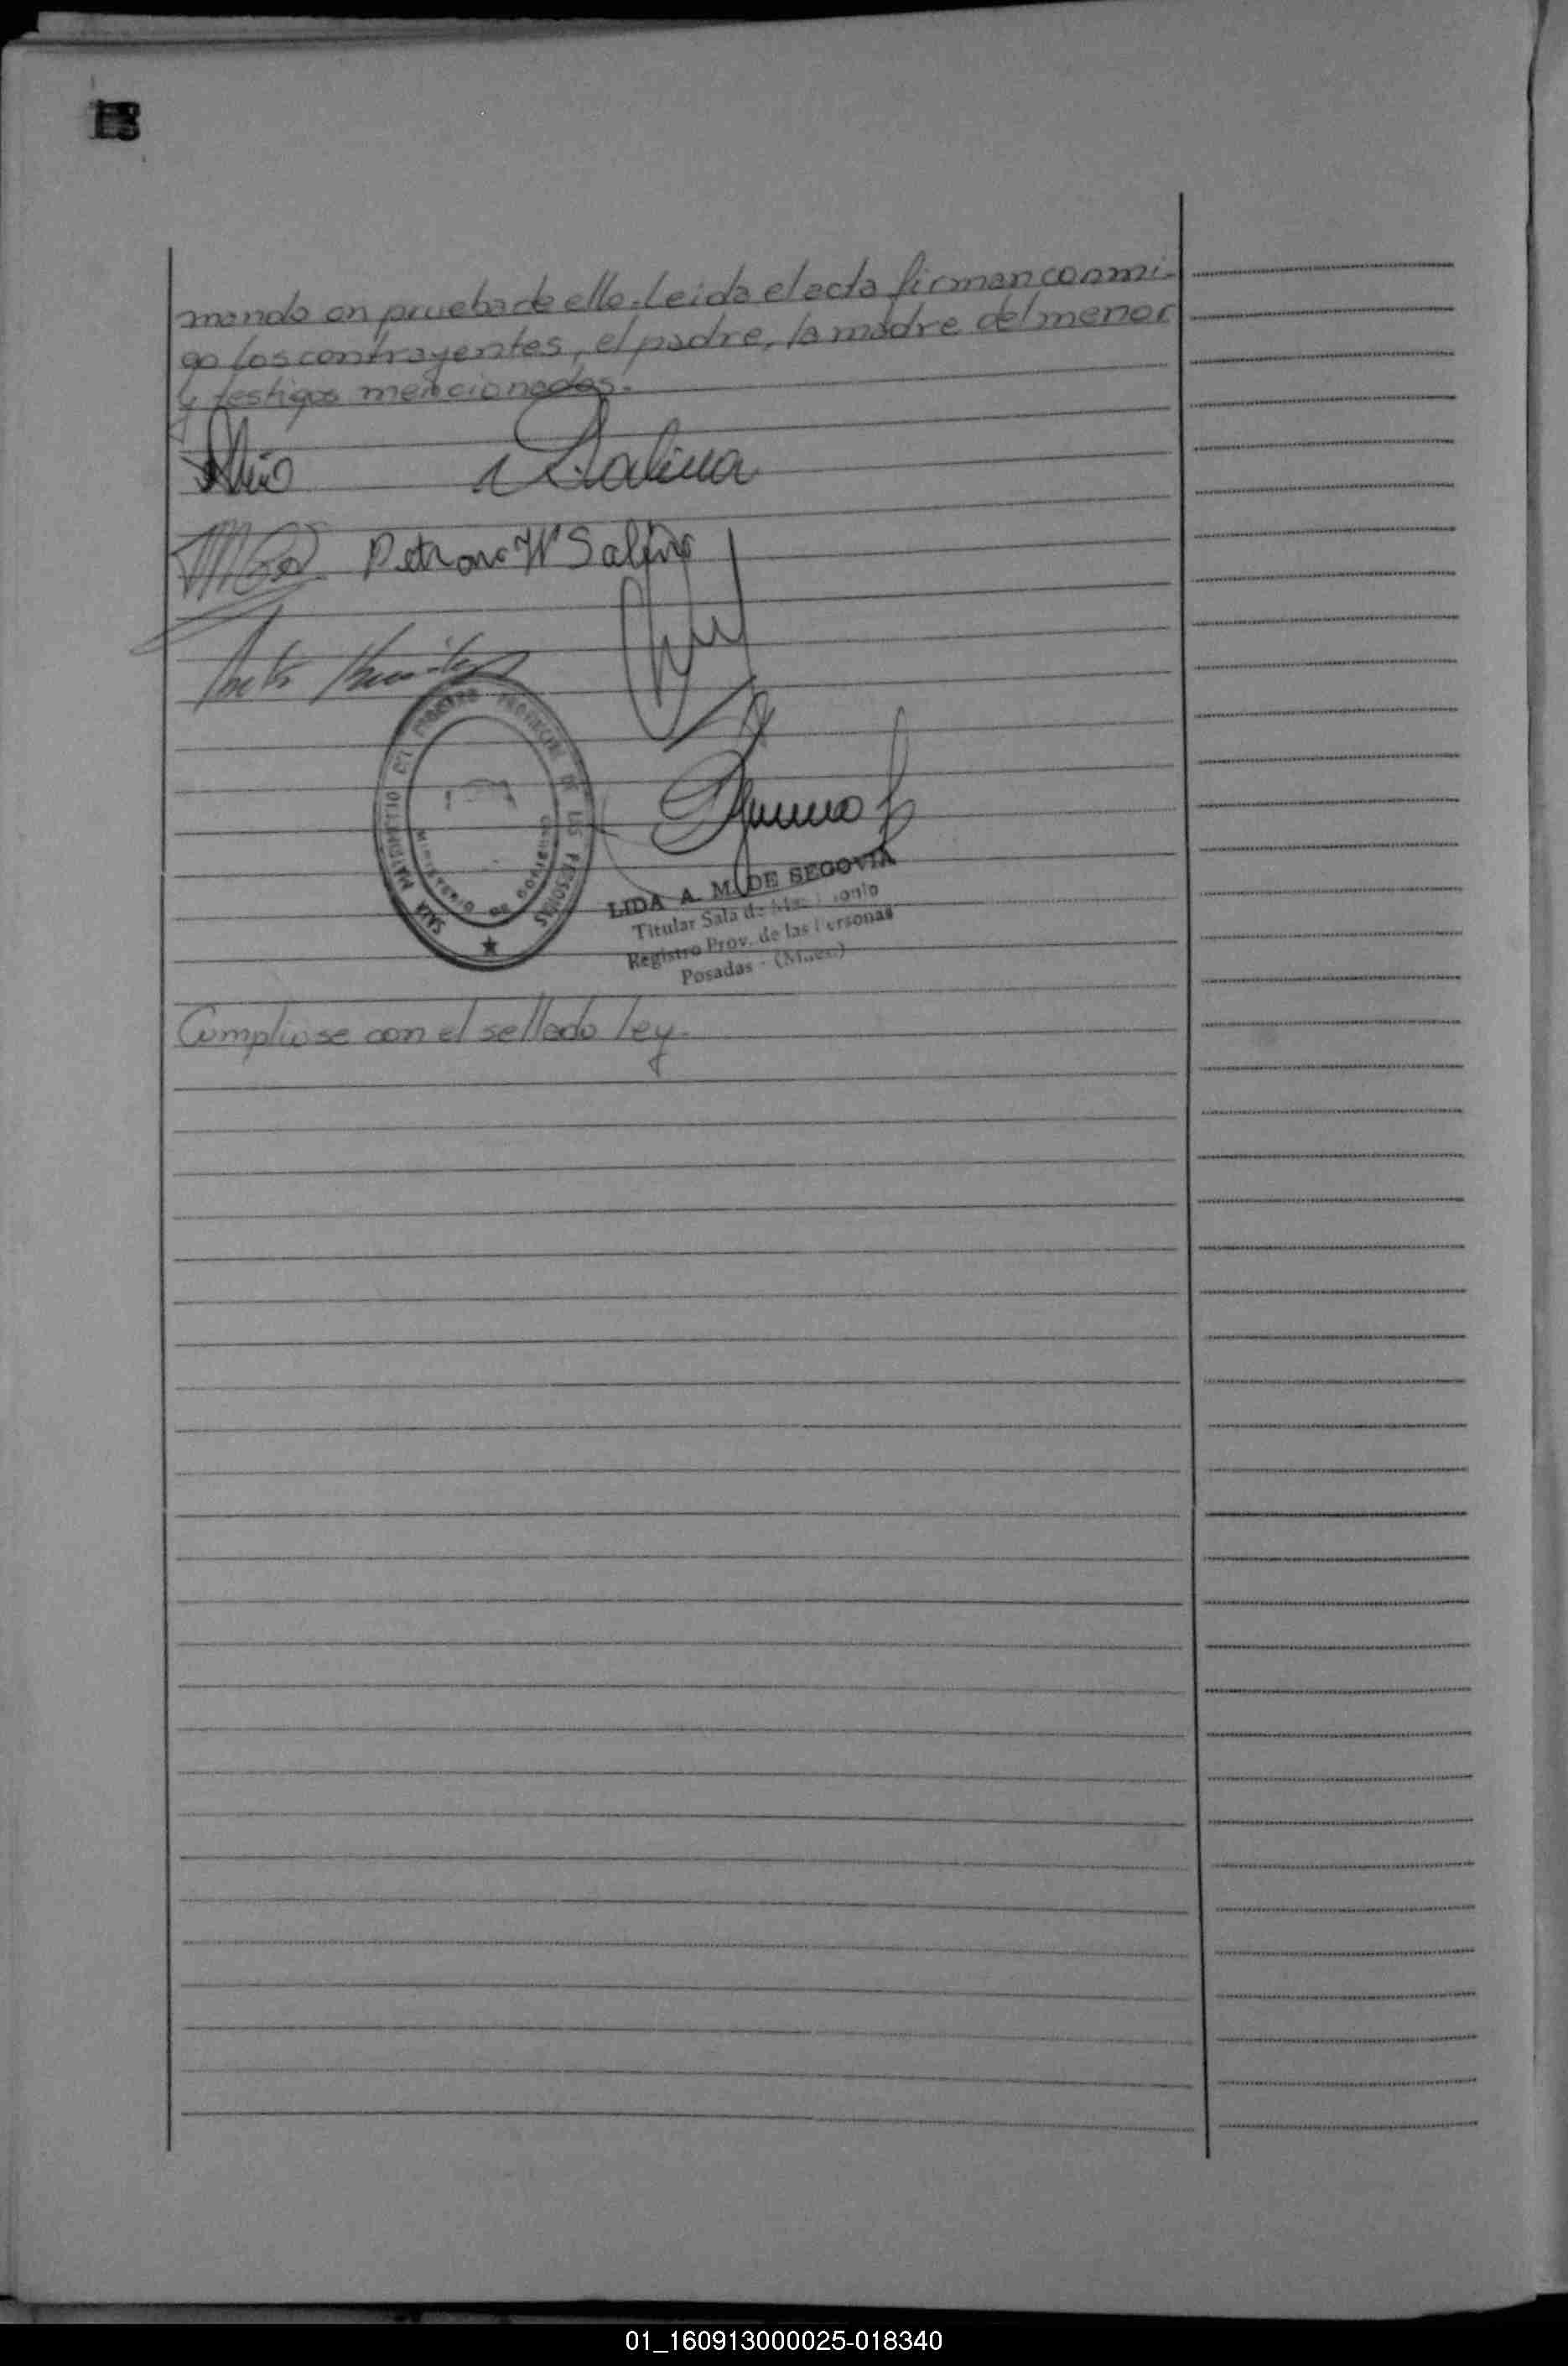 mando en prueba de ello. Leida el acta firman conmi-
go los contrayentes, el padre, la madre del menor
y testigos mencionados.
Petrona W Salina
SALA MATRIMONIO DEL REGISTRO PROVINCIAL DE LAS PERSONAS
LIDA A. M. DE SEGOVIA
Titular Sala de Matrimonio
Registro Prov. de las Personas
Posadas - (Mnes.)
Cumpliose con el sellado ley.
01_160913000025-018340